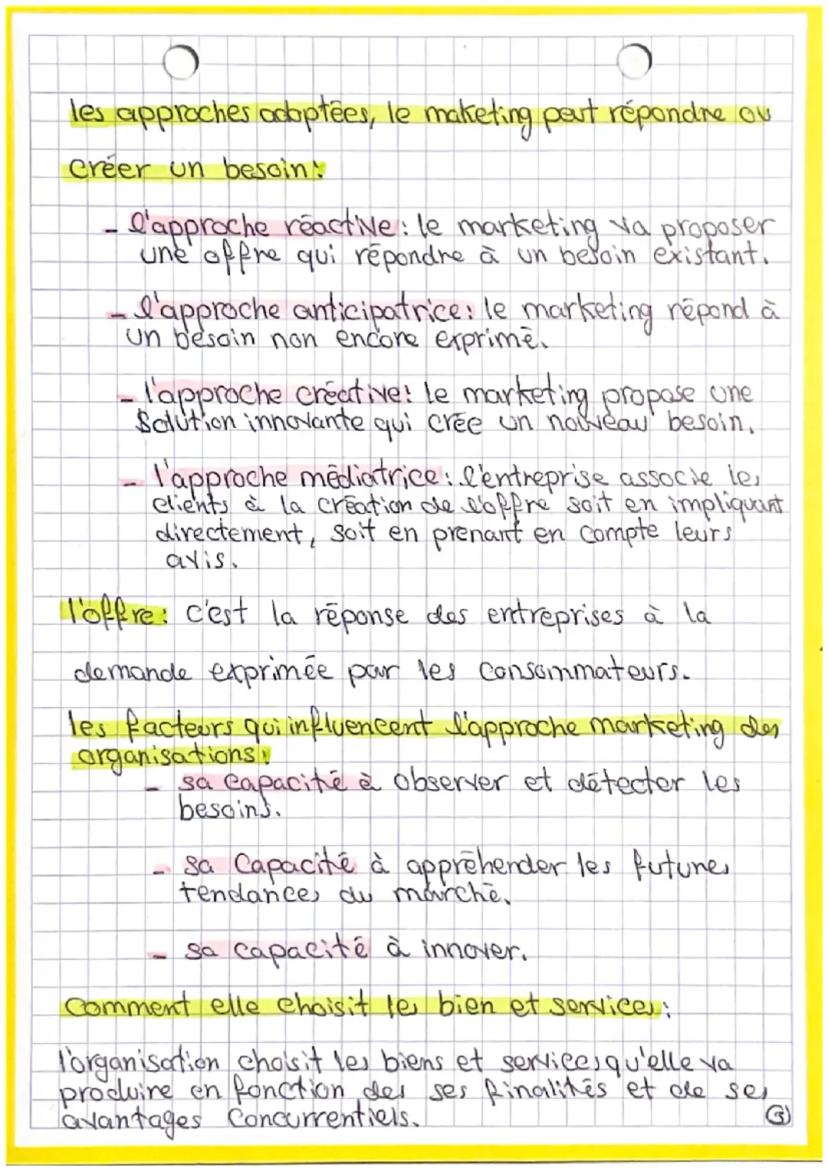 les approches adoptées, le maketing peut répondre ou
créer un besoin:
- l'approche réactive: le marketing va proposer
une offre qui répondre à un besoin existant.
- l'approche anticipatrice: le marketing répond à
un besoin non encore exprimé.
- l'approche créative: le marketing propose une
solution innovante qui crée un nouveau besoin.
- l'approche médiatrice: l'entreprise associe les
clients à la création de l'offre soit en impliquant
directement, soit en prenant en compte leurs
avis.
l'offre: c'est la réponse des entreprises à la
demande exprimée par les consommateurs.
les facteurs qui influencent l'approche marketing des
organisations:
- sa capacité à observer et détecter les
besoins.
- sa capacité à appréhender les futures
tendances du marché.
- sa capacité à innover.
Comment elle choisit les bien et services:
l'organisation choisit les biens et services qu'elle va
produire en fonction des ses finalités et de ses
avantages concurrentiels.
3